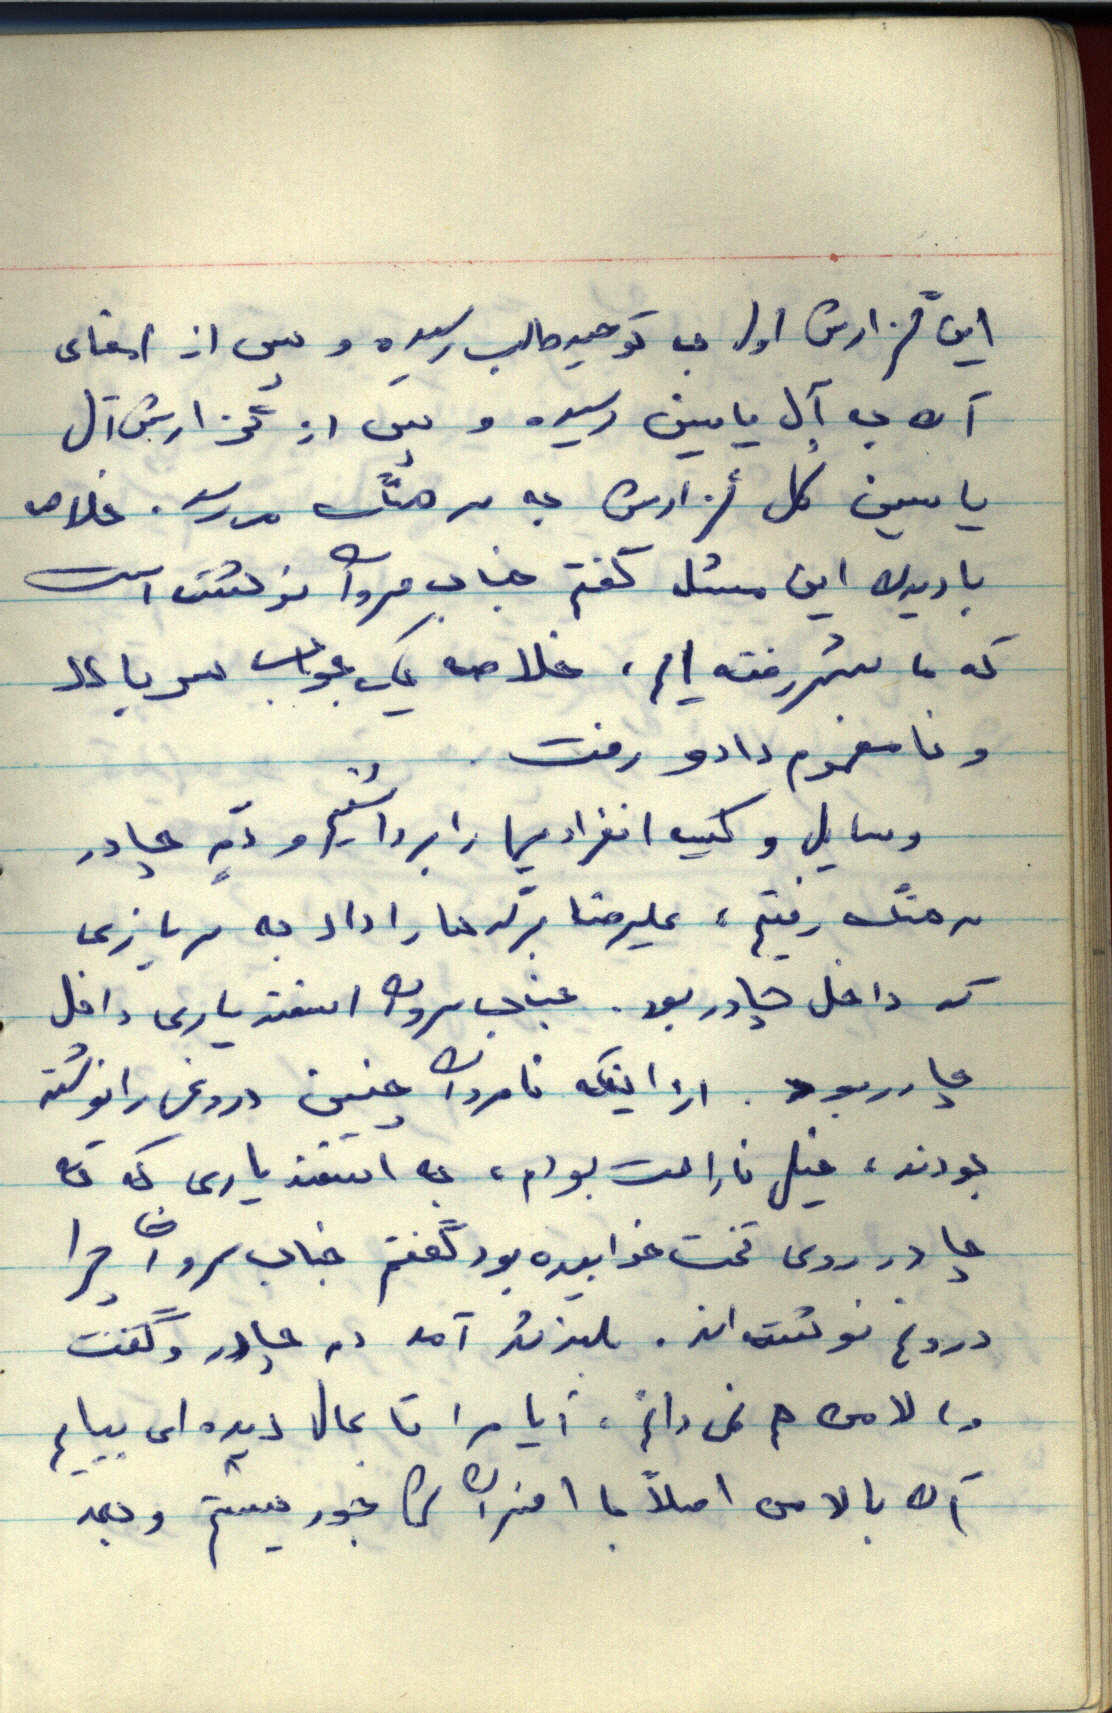 این گزارش اول به توحید طلب رسیده و پس از امضای
آن به آل یاسین رسیده و پس از گزارش آل
یاسین کل گزارش به سرهنگ میرسد. خلاصه
با دیدن این مسئله گفتم جناب سروان نوشته است
که ما شهر رفته ایم، خلاصه یک جواب سر بالا
و نامفهوم داد و رفت.
وسایل و کیسه انفرادیها را برداشتیم و دم چادر
سرهنگ رفتیم، علیرضا برگه ها را داد به سربازی
که داخل چادر بود. جناب سروان اسفندیاری داخل
چادر بود. از اینکه نامردان چنین دروغی را نوشته
بودند، خیلی ناراحت بودم، به اسفندیاری که ته
چادر روی تخت خوابیده بود گفتم جناب سروان چرا
دروغ نوشته اند. بلند شد آمد دم چادر و گفت
والا من هم نمی دانم، آیا مرا تا بحال دیده ای بیایم
آن بالا من اصلاً با افسران آنجا جور نیستم و بعد